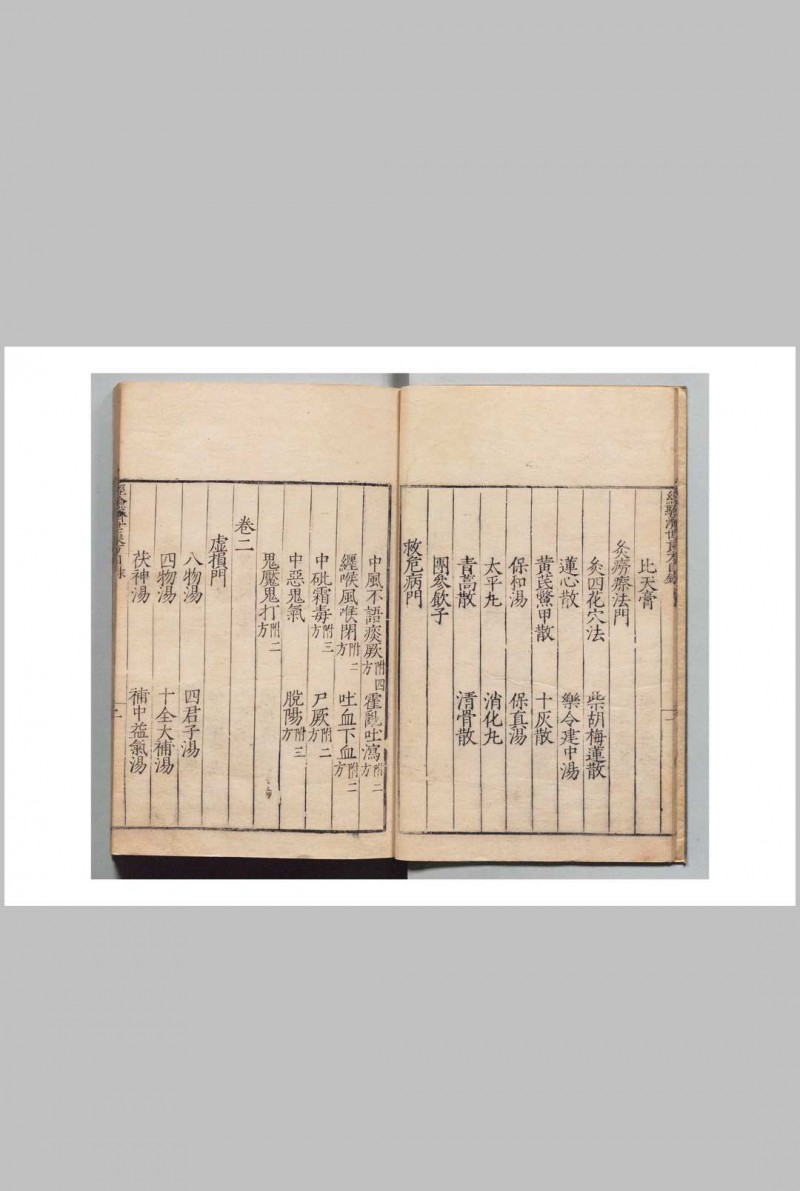 比天膏
灸癆瘵法門
灸四花穴法 柴胡梅蓮散
蓮心散 樂令建中湯
黃茋鱉甲散 十灰散
保和湯 保真湯
太平丸 消化丸
青蒿散 清骨散
團參飲子
救危病門
中風不語痰厥附四方 霍亂吐瀉附二方
纏喉風喉閉附二方 吐血下血附二方
中砒霜毒附三方 尸厥附二方
中惡鬼氣 脫陽附三方
鬼魘鬼打附二方
卷二
虛損門
八物湯 四君子湯
四物湯 十全大補湯
茯神湯 補中益氣湯